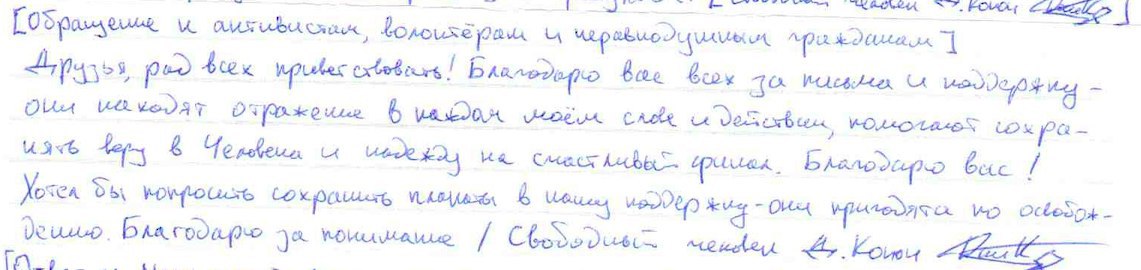 человек
[Обращение к активистам, волонтёрам и неравнодушным гражданам]
Друзья, рад всех приветствовать! Благодарю вас всех за письма и поддержку –
они находят отражение в каждом моём слове и действии, помогают сохра-
нять веру в Человека и надежду на счастливый финал. Благодарю вас!
Хотел бы попросить сохранить плакаты в нашу поддержку – они пригодятся по освобож-
дению. Благодарю за понимание / Свободный человек Д.
[Ответ